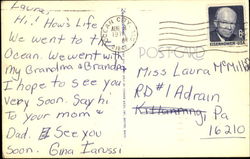 Laura,
Hi! How's Life
We went to the
Ocean. We went with
my Grandma & Grandpa
I hope to see you
very Soon. Say hi
To your mom &
Dad. See you
Soon. Gina Iarussi
OCEAN CITY
POSTCARD
EISENHOWER·USA
Miss Laura McMills
RD #1 Adrain
Kittanning, Pa
16210